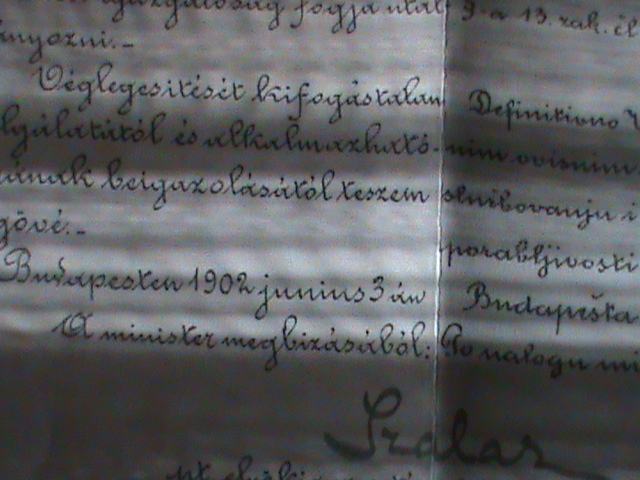 igazgatóság fogja utal
nyozni.-
Véglegesitését kifogástalan
lgálatától és alkalmazható-
ának beigazolásától teszem
gővé.-
Budapesten 1902 junius 3án
A minister megbizásából:
9. a 13. rak. él
Definitivno
nim ovisnim
službovanju i
porabljivosti
Budapešta
Po nalogu mi
Szalay